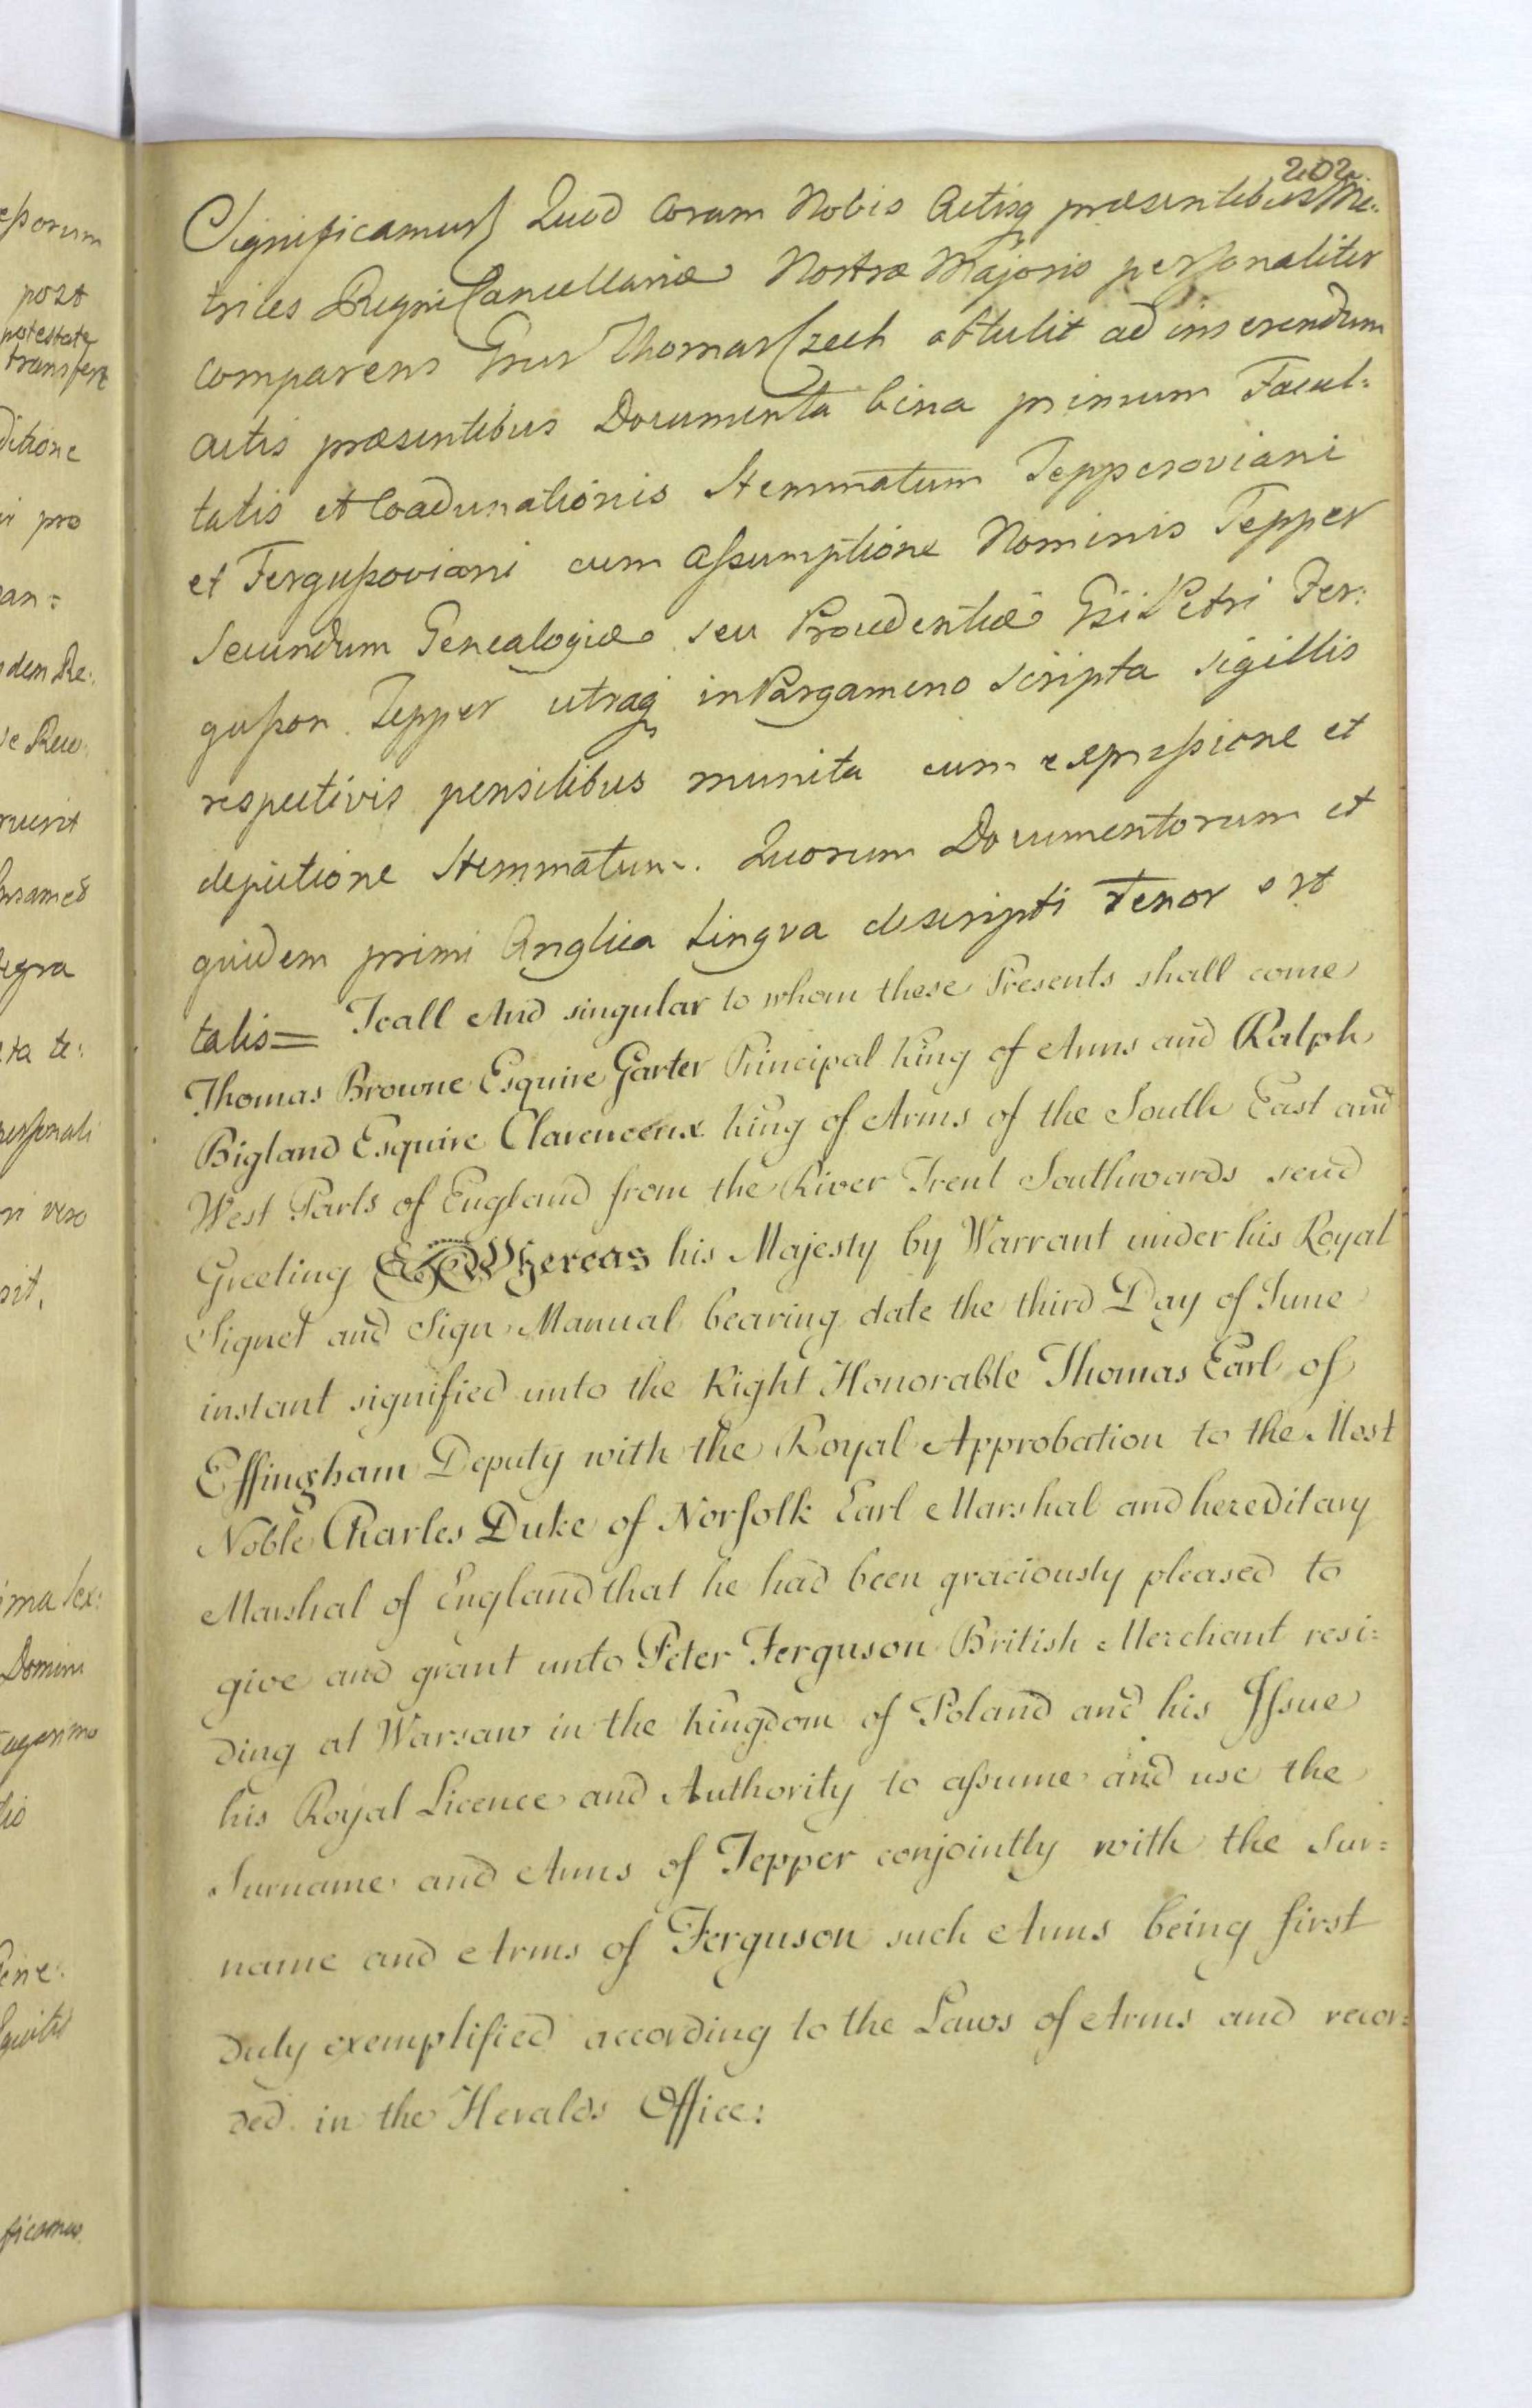 202.
Significamus Quod Coram Nobis Actisq præsentibus Me:
trices Regni Cancellariæ Nostræ Majoris personaliter
comparens Grus Thomas Czech obtulit ad inserendum
actis præsentibus Documenta bina primum Facul:
tatis et Coadunationis Stemmatum Tepperoviani
et Fergusoviani cum assumptione Nominis Tepper
secundum Genealogiæ seu Procedentiæ Gsi Petri Fer:
guson Tepper utraq in Pargameno scripta sigillis
respectivis pensilibus munita cum expressione et
depictione Stemmatum. Quorum Documentorum et
quidem primi Anglica Lingva descripti Tenor est
talis = To all And singular to whom these Presents shall come
Thomas Browne Esquire Garter Principal King of Arms and Ralph
Bigland Esquire Clarenceux King of Arms of the South East and
West Parts of England from the River Trent Southwards send
Greeting Whereas his Majesty by Warrant under his Royal
Signet and Sign Manual bearing date the third Day of June
instant signified unto the Right Honorable Thomas Earl of
Effingham Deputy with the Royal Approbation to the Most
Noble Charles Duke of Norfolk Earl Marshal and hereditary
Marshal of England that he had been graciously pleased to
give and grant unto Peter Ferguson British Merchant resi:
ding at Warsaw in the Kingdom of Poland and his Issue
his Royal Licence and Authority to assume and use the
Surname and Arms of Tepper conjointly with the Sur:
name and Arms of Ferguson such Arms being first
duly exemplified according to the Laws of Arms and recor:
ded in the Heralds Office: